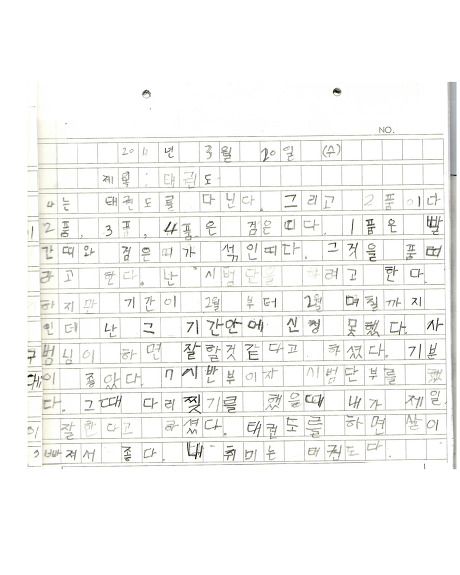 NO.
20 년 3월 20일 (수)
제목: 태권도
나는 태권도를 다닌다. 그리고 2품이다
2품, 3품, 4품은 검은띠다. 1품은 빨
간띠와 검은띠가 석인띠다. 그것을 품띠
라고 한다. 난 시범단을 하려고 한다.
하지만 기간이 2월 부터 2월 며칠까지
인데 난 그 기간안에 신청 못했다. 사
범님이 하면 잘할것같다고 하셨다. 기분
이 좋았다. 7시반부이자 시범단부를 했
다. 그때 다리찢기를 했을때 내가 제일
잘한다고 하셨다. 태권도를 하면 살이
빠져서 좋다. 내 취미는 태권도다.